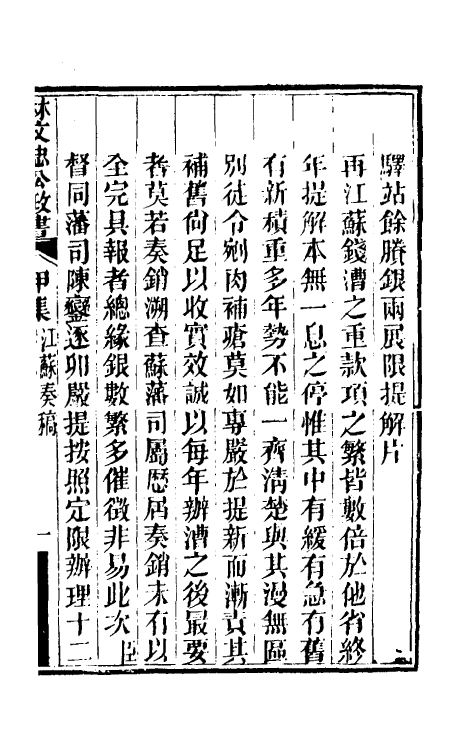 驛站餘賸銀兩展限提解片
再江蘇錢漕之重款項之繁皆數倍於他省終
年提解本無一息之停惟其中有緩有急有舊
有新積重多年勢不能一齊清楚與其漫無區
別徒令剜肉補瘡莫如專嚴於提新而漸責其
補舊尙足以收實效誠以每年辦漕之後最要
者莫若奏銷溯查蘇藩司屬歷屆奏銷未有以
全完具報者總緣銀數繁多催徵非易此次臣
督同藩司陳鑾逐卯嚴提按照定限辦理十二
林文忠公政書
甲集
江蘇奏稿
一